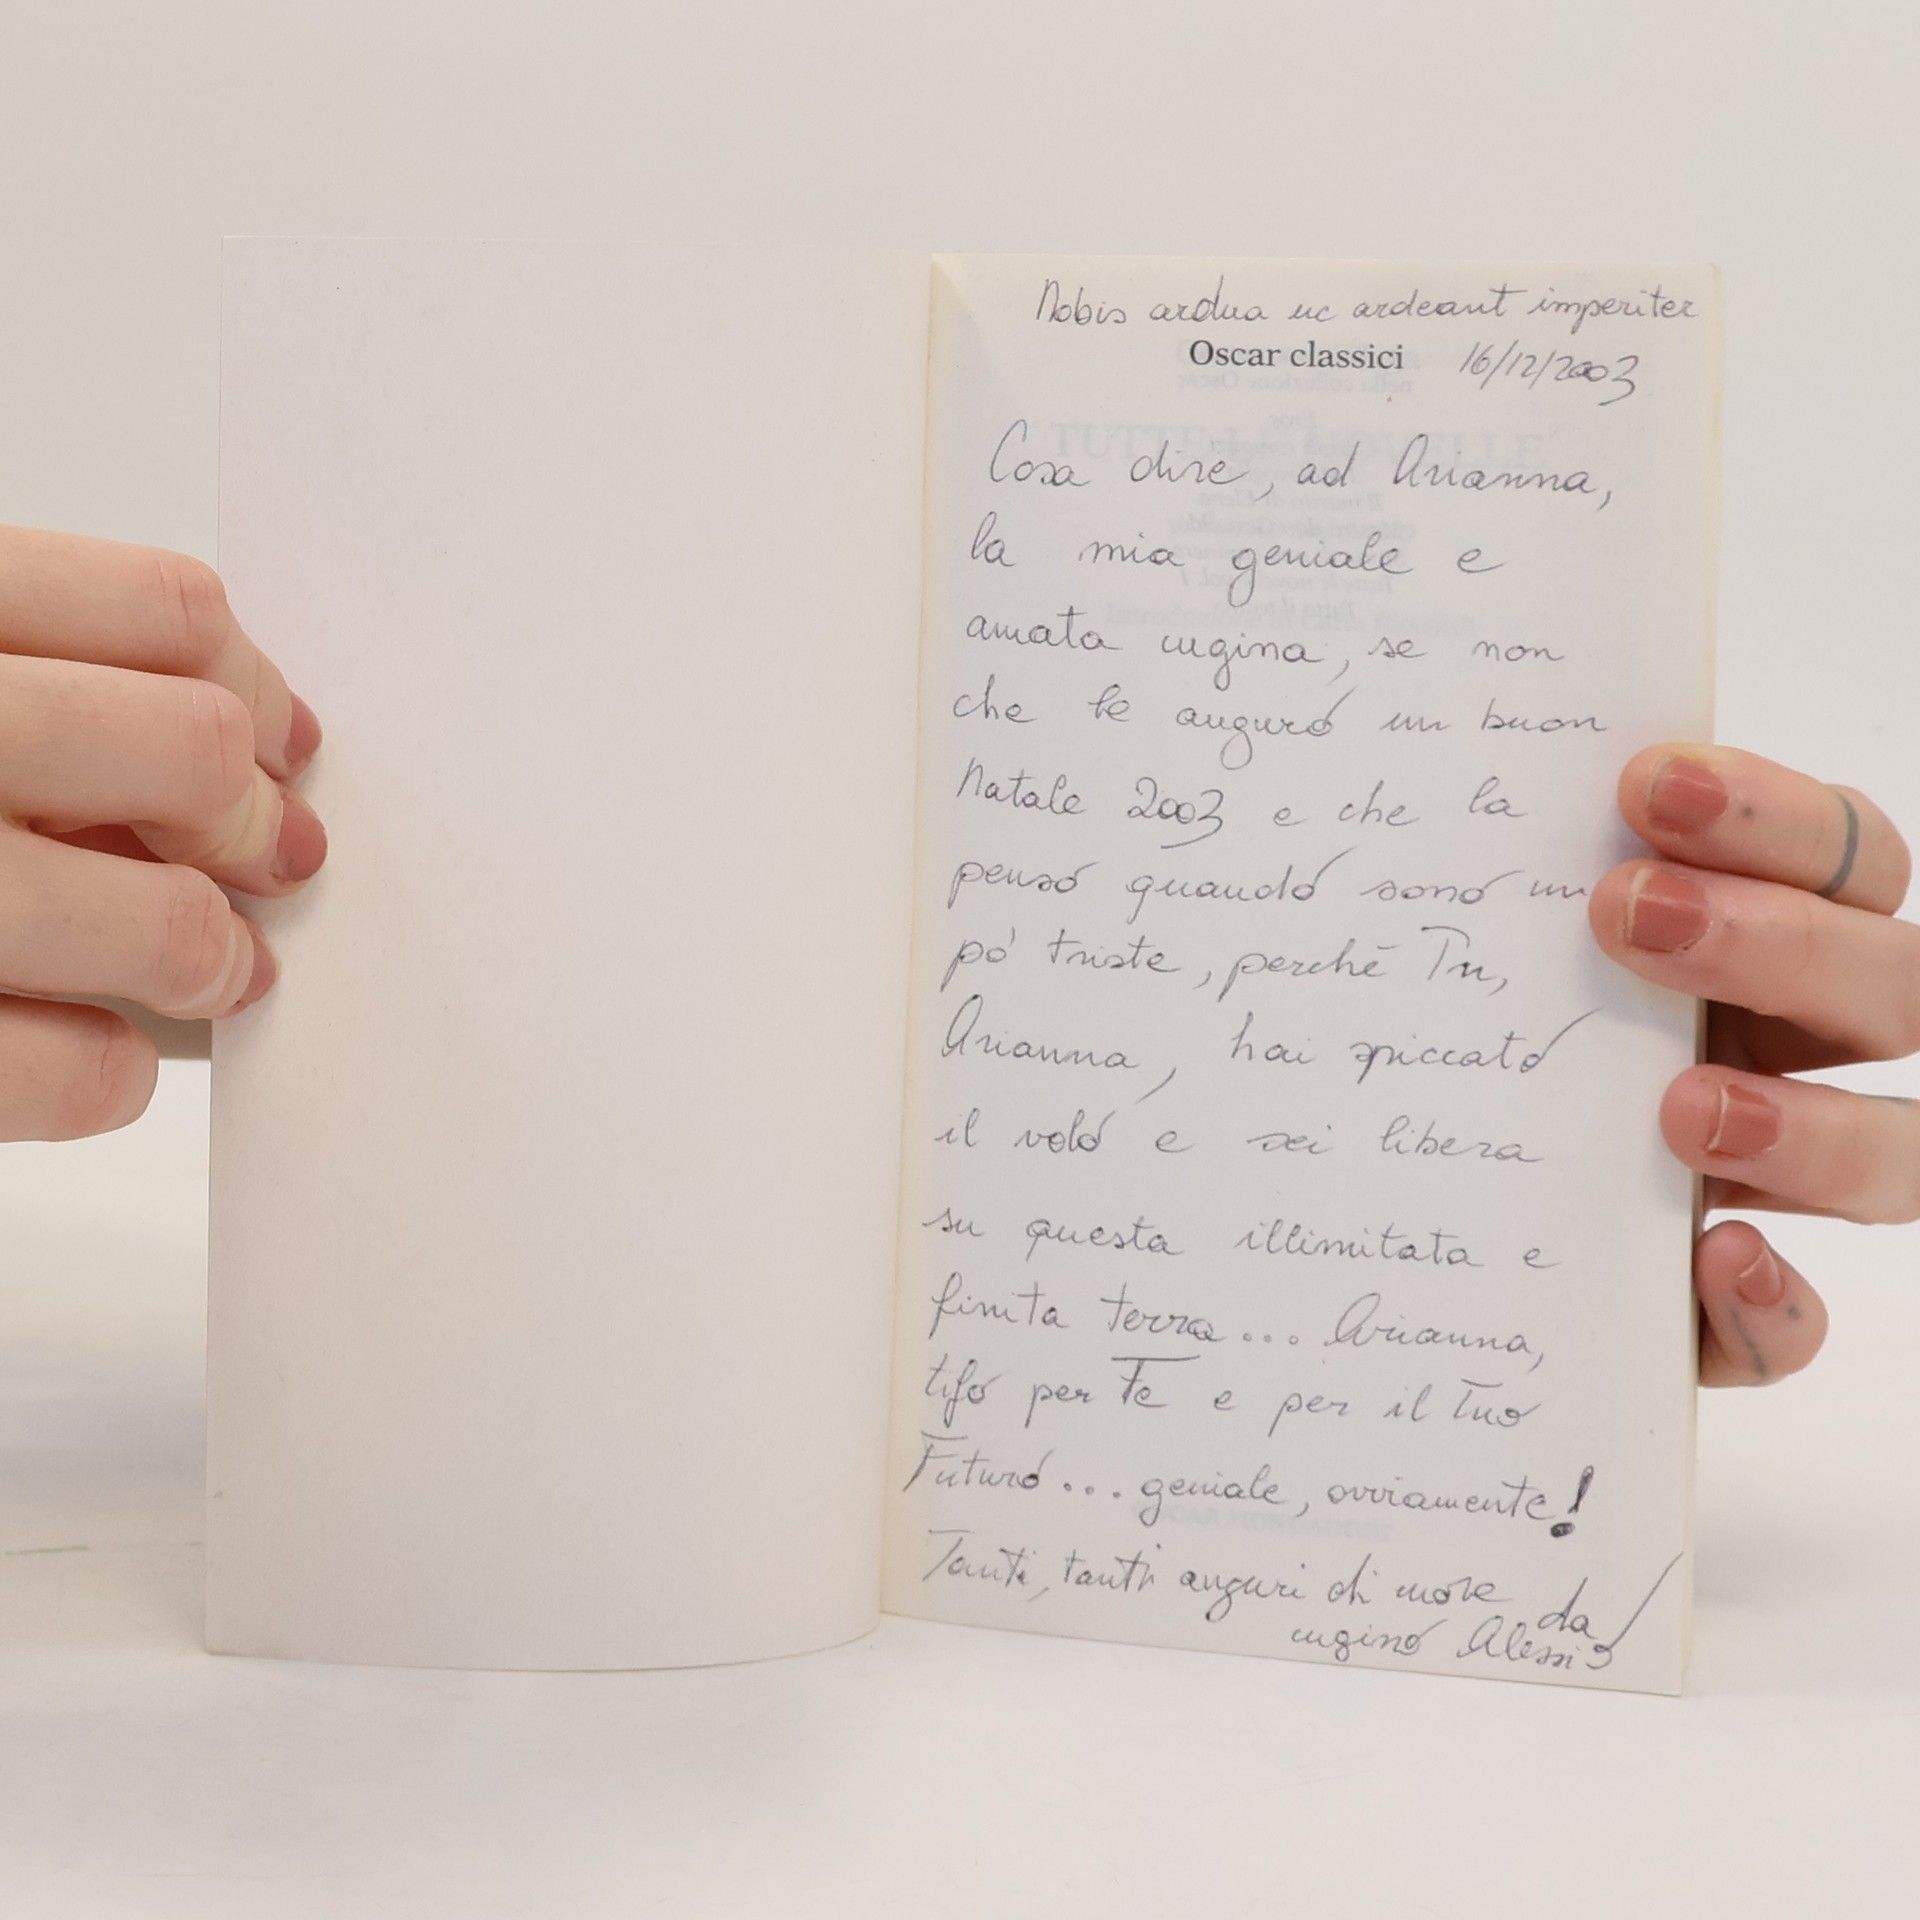 Nobis ardua uc ardeant imperiter
Oscar classici 16/12/2003
Cosa dire, ad Arianna,
la mia geniale e
amata cugina, se non
che le auguro un buon
Natale 2003 e che la
penso quando sono un
po' triste, perché Tu,
Arianna, hai spiccato
il volo e sei libera
su questa illimitata e
finita terra... Arianna,
tifo per Te e per il Tuo
Futuro... geniale, ovviamente!
Tanti, tanti auguri di cuore da
cugino Alessio
TUTTE LE NOVELLE